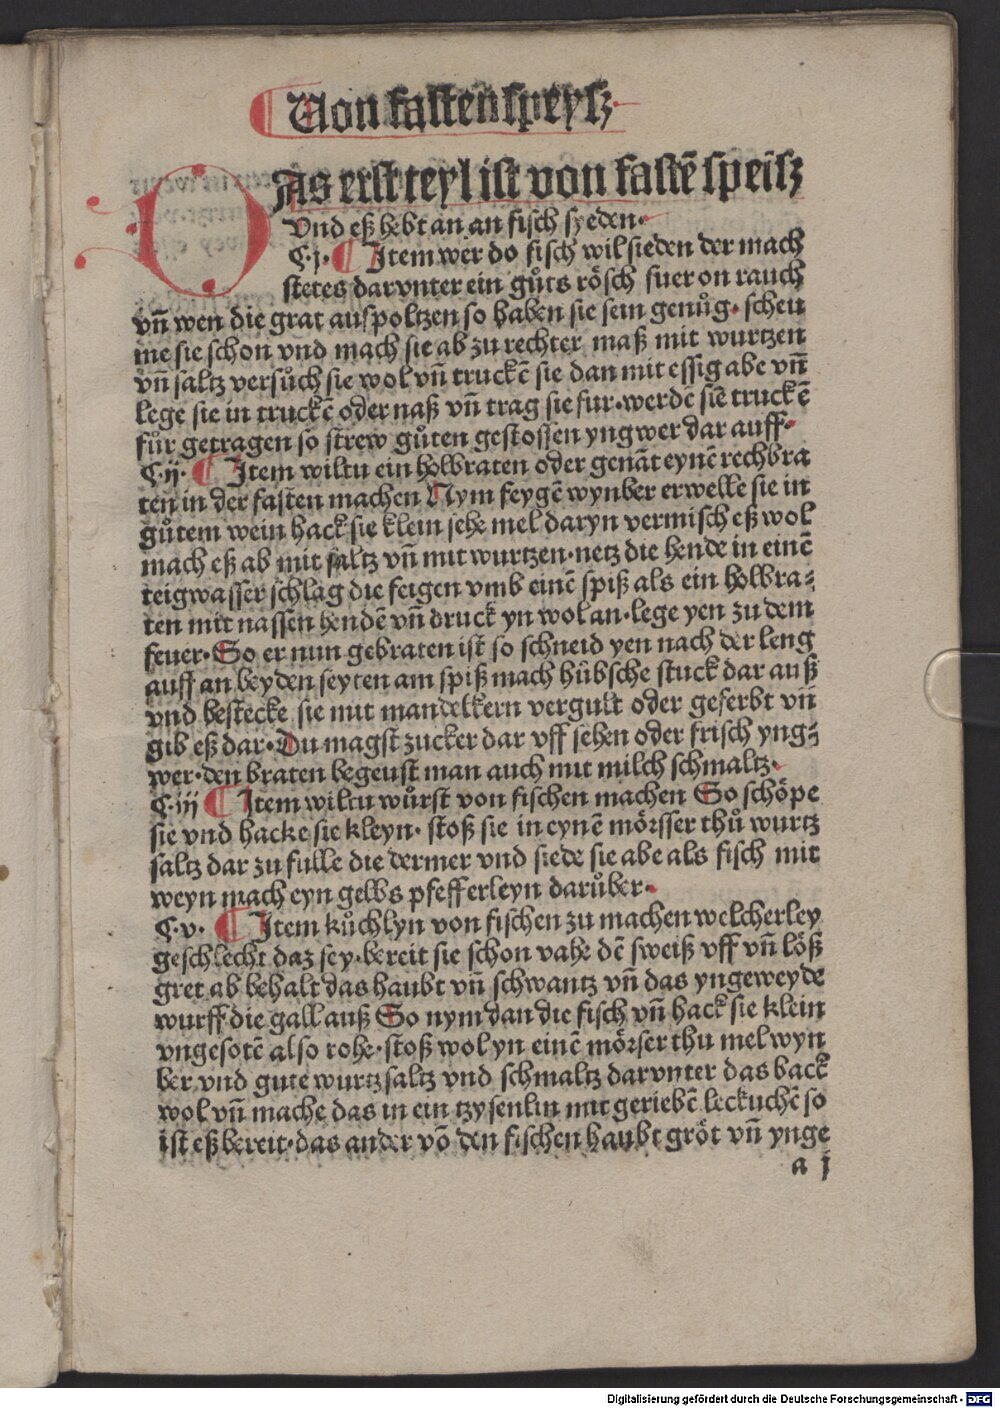 Von fasten speysz
DAs erst teyl ist von fastē speisz
vnd eß hebt an an fisch syeden·
C·j· Item wer do fisch wil sieden der mach
stetes darvnter ein gůts rösch fuer on rauch
vñ wen die grat auspoltzen so haben sie sein genůg· scheu
me sie schon vnd mach sie ab zu rechter maß mit wurtzen
vñ saltz versůch sie wol vñ truckē sie dan mit essig abe vñ
lege sie in truckē oder naß vñ trag sie fur·werdē sie truckē
fůr getragen so strew gůten gestossen yngwer dar auff·
C·ij· Item wiltu ein holbraten oder genāt eynē rechbra
ten in der fasten machen Nym feygē wynber erwelle sie in
gůtem wein hack sie klein sehe mel daryn vermisch eß wol
mach eß ab mit saltz vñ mit wurtzen·netz die hende in einē
teigwasser schlag die feigen vmb einē spiß als ein holbra⸗
ten mit nassen hendē vñ druck yn wol an·lege yen zu dem
feuer·So er nun gebraten ist so schneid yen nach der leng
auff an beyden seyten am spiß mach hübsche stuck dar auß
vnd bestecke sie mit mandelkern vergult oder geferbt vñ
gib eß dar·Du magst zucker dar vff sehen oder frisch yng⸗
wer·den braten begeust man auch mit milch schmaltz·
C·iij Item wiltu wůrst von fischen machen So schöpe
sie vnd hacke sie kleyn· stoß sie in eynē mörsser thů wurtz
saltz dar zu fulle die dermer vnd siede sie abe als fisch mit
weyn mach eyn gelbs pfefferleyn darůber·
C·v· Item kůchlyn von fischen zu machen welcherley
geschlecht daz sey·bereit sie schon vahe dē sweiß vff vñ löß
gret ab behalt das haubt vñ schwantz vñ das yngeweyde
wurff die gall auß So nym dan die fisch vñ hack sie klein
vngesotē also rohe·stoß wol yn einē mörser thu mel wyn
ber vnd gute wurtz saltz vnd schmaltz darvnter das back
wol vñ mache das in ein tzysenlin mit geriebē leckuchē so
ist eß bereit·das ander vō den fischen haubt gröt vñ ynge
a j
Digitalisierung gefördert durch die Deutsche Forschungsgemeinschaft - DFG